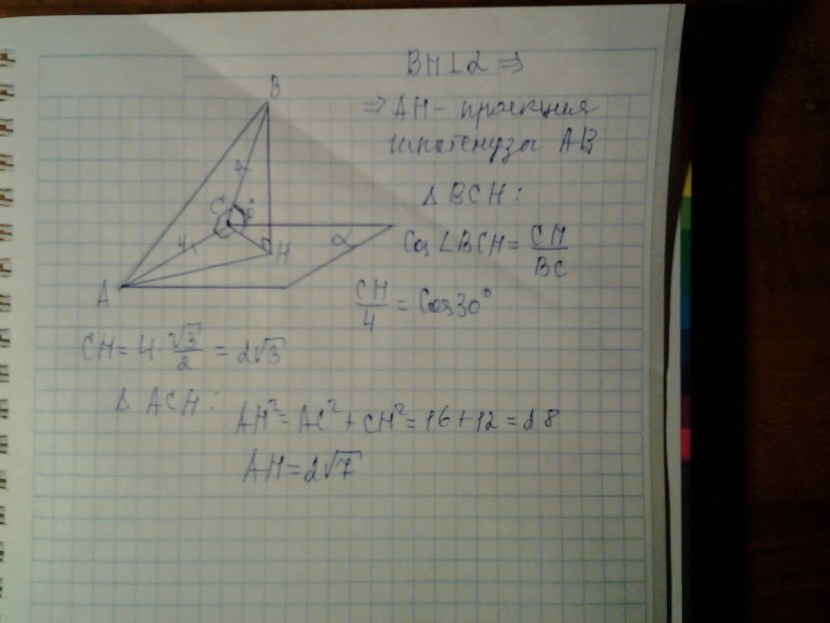 BH⊥α ⇒
⇒ AH – проекция
гипотенузы AB
Δ BCH:
Cos ∠BCH = CH/BC
CH/4 = Cos30°
CH = 4·√3/2 = 2√3
Δ ACH:
AH² = AC² + CH² = 16 + 12 = 28
AH = 2√7
B
4
C
4
H
α
A